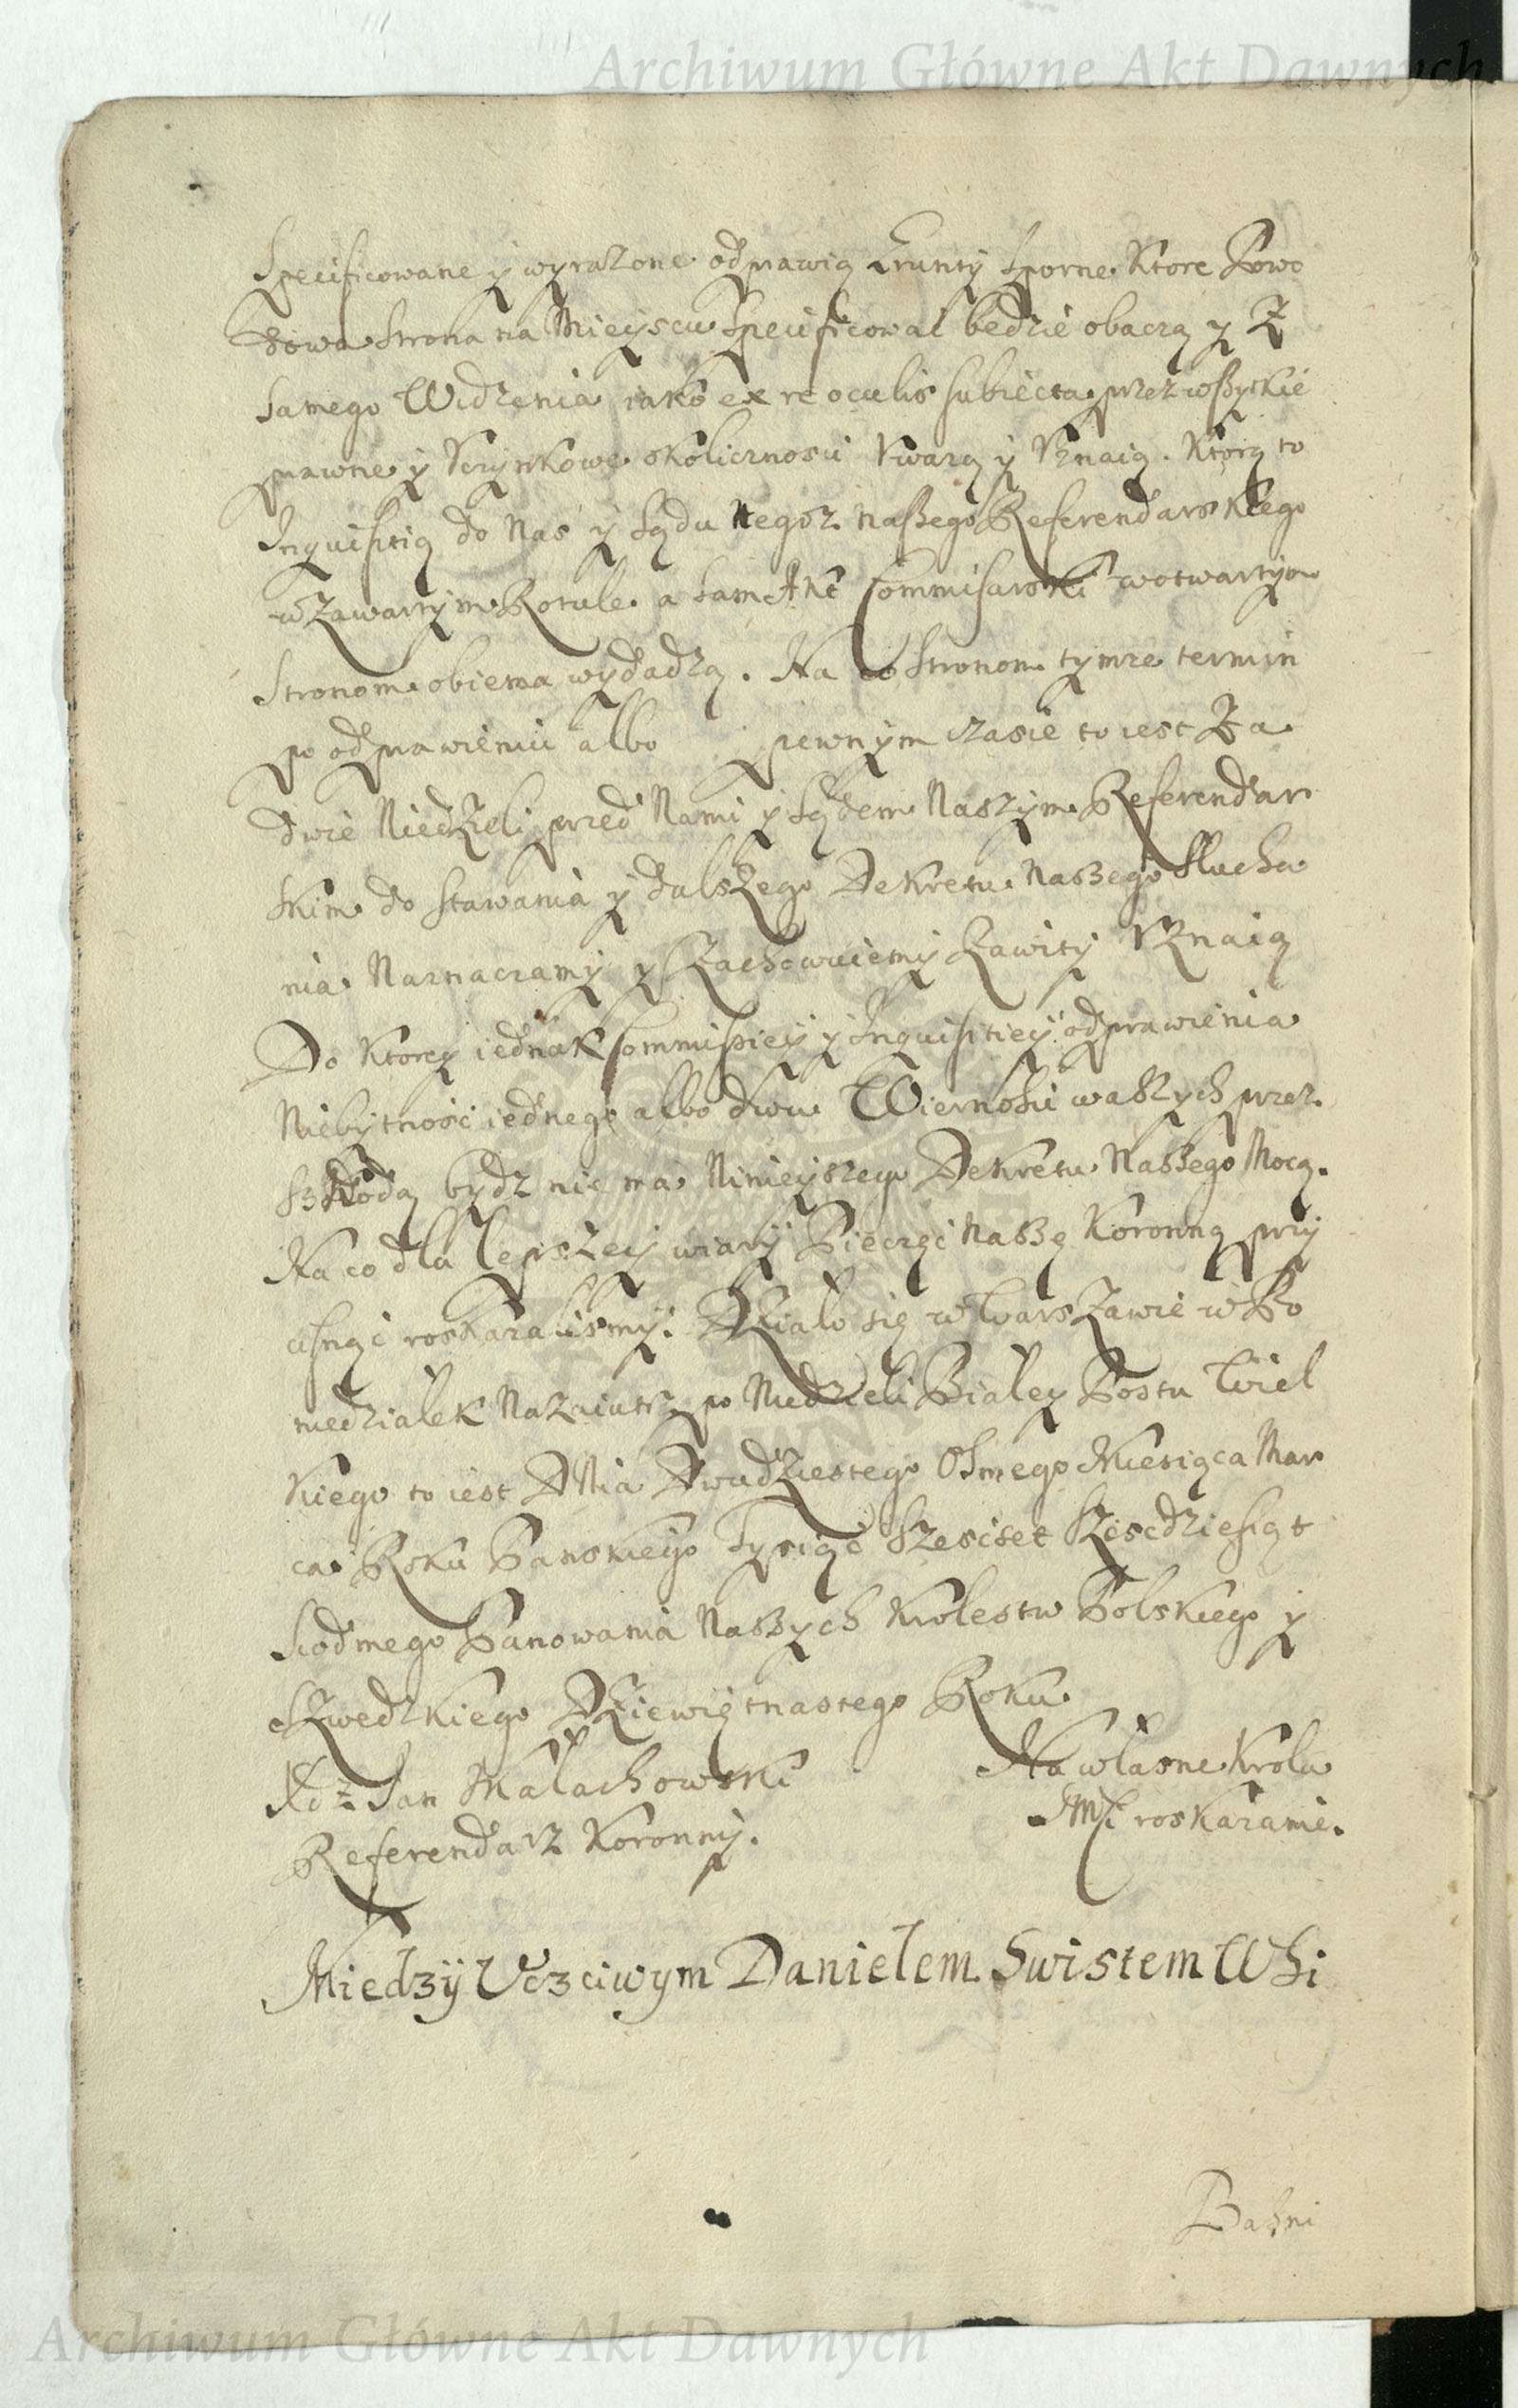 Archiwum Główne Akt Dawnych
Specificowane y wyrazone odprawią Grunty Sporne Ktore Powo
dowa Strona na Mieyscu Specificowal będzie obaczą y Z
samego Widzenia iako ex re oculis subiecta przez wszytkie
prawne y Uczynkowe okolicznosci Uwarzą y Uznaią. Ktorą to
Inquisitią do Nas y Sądu tegoz naszego Referendarskiego
w Zawartym Rotule a sam Akt Commisarski w otwartym
Stronom obiema wydadzą. Na co Stronom tymze termin
po odprawieniu albo pewnym czasie to iest Za
dwie Niedzieli przed Nami y Sądem Naszym Referendar
skim do Stawania y dalszego Dekretu Naszego Słucha
nia Naznaczamy y Zachowuiemy Zawity Uznaią
Do Ktorey iednak Commissiey y Inquisitiey odprawienia
Niebytnosc iednego albo dwu Wiernosci waszych przez
Szkodą bydz nie ma Ninieyszego Dekretu Naszego Mocą.
Na co dla lepszey wiary Pieczęć Naszę Koronną przy
cisnąć roskazalismy. Działo się w Warszawie w Po
niedziałek Nazaiutrz po Niedzieli Białey Postu Wiel
kiego to iest Dnia Dwudziestego Osmego Miesiąca Mar
ca Roku Panskiego Tysiąc Szescset Szescdziesiąt
Siodmego Panowania Naszych Krolestw Polskiego y
Szwedzkiego Dziewiętnastego Roku
Xdz Jan Małachowski
Referendarz Koronny.
Na własne Krola
JMĆi roskazanie.
Miedzy Uczciwym Danielem Swistem Whi
Bahni
Archiwum Główne Akt Dawnych